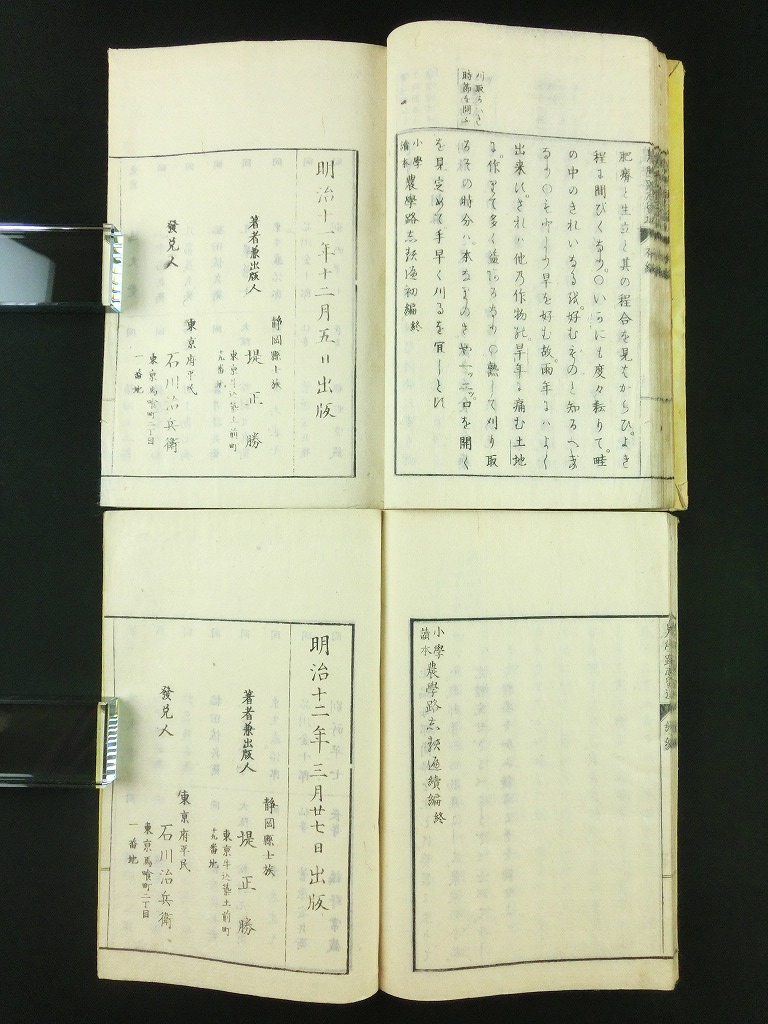 刈取るへき
時節を聞く
肥瘠と生立と其の程合を見はからひ。よき
程に間びくなり。〇いかにも度々耘りて。畦
の中のきれいなるを。好むものと知るへき
なり〇そも〱早を好む故。雨年にハよく
出来に。されハ他乃作物乃。旱年に痛む土地
に。作りて多く益あるなり〇熟して刈り取
るその時分ハ。本なりのさや一ッ二ッ口を開く
を見定めて手早く刈るを宜しとす
小學
讀本
農學路志類遍初編終
明治十一年十二月五日出版
著者兼出版人
靜岡縣士族
堤正勝
東京牛込築土前町
十九番地
發兌人
東京府平民
石川治兵衛
東京馬喰町二丁目
一番地
小學
讀本
農學路志類遍續編終
明治十二年三月廿七日出版
著者兼出版人
靜岡縣士族
堤正勝
東京牛込築土前町
十九番地
發兌人
東京府平民
石川治兵衛
東京馬喰町二丁目
一番地